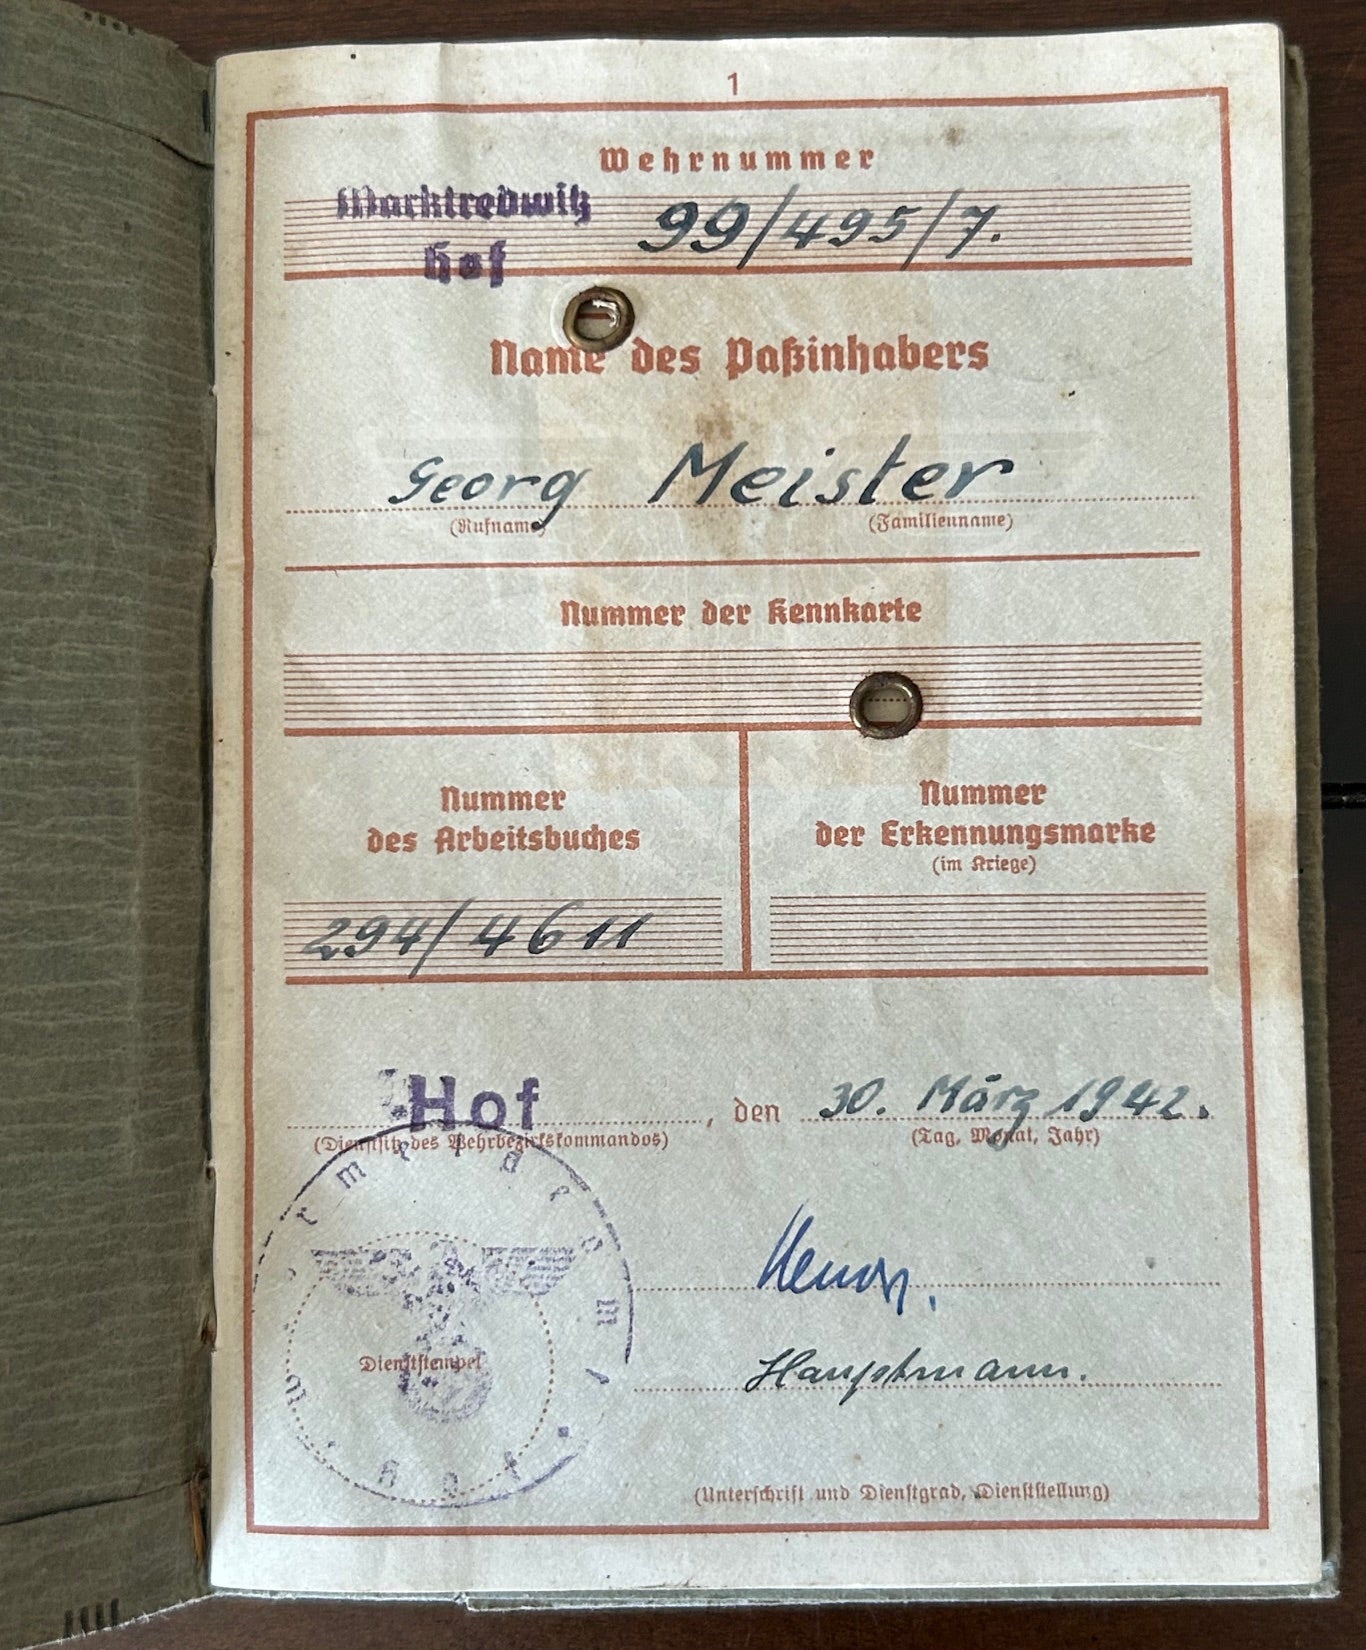 1
Wehrnummer
Marktredwitz 99/495/7.
Hof
Name des Paßinhabers
Georg Meister
(Rufname) (Familienname)
Nummer der Kennkarte
Nummer
des Arbeitsbuches
Nummer
der Erkennungsmarke
(im Kriege)
294/4611
Hof, den 30. März 1942.
(Dienstsitz des Wehrbezirkskommandos) (Tag, Monat, Jahr)
Dienststempel
Hauptmann.
(Unterschrift und Dienstgrad, Dienststellung)